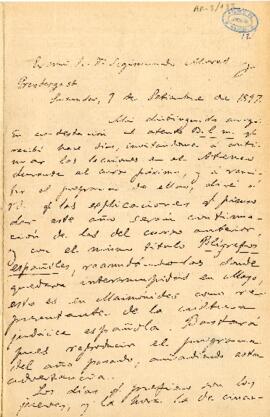 Excmo Sr. D. Segismundo Moret y
Prendergast
Santander, 7 de Setiembre de 1897.
Mi distinguido amigo:
En contestación al atento B.L.M. q.
recibí hace días, invitándome a conti-
nuar las lecciones en el Ateneo
durante el curso próximo, y a remi-
tir el programa de ellas, diré a
Vd. q. las explicaciones q. pienso
dar este año serán continua-
ción de las del curso anterior
y con el mismo título Polígrafos
españoles, reanudándolas donde
quedaron interrumpidas en Mayo,
esto es en Maimónides como re-
presentante de la cultura
judáica española. Bastará
pues reproducir el programa
del año pasado, añadiendo esta
advertencia.
Los días q. prefiero son los
jueves, y la hora la de cua-